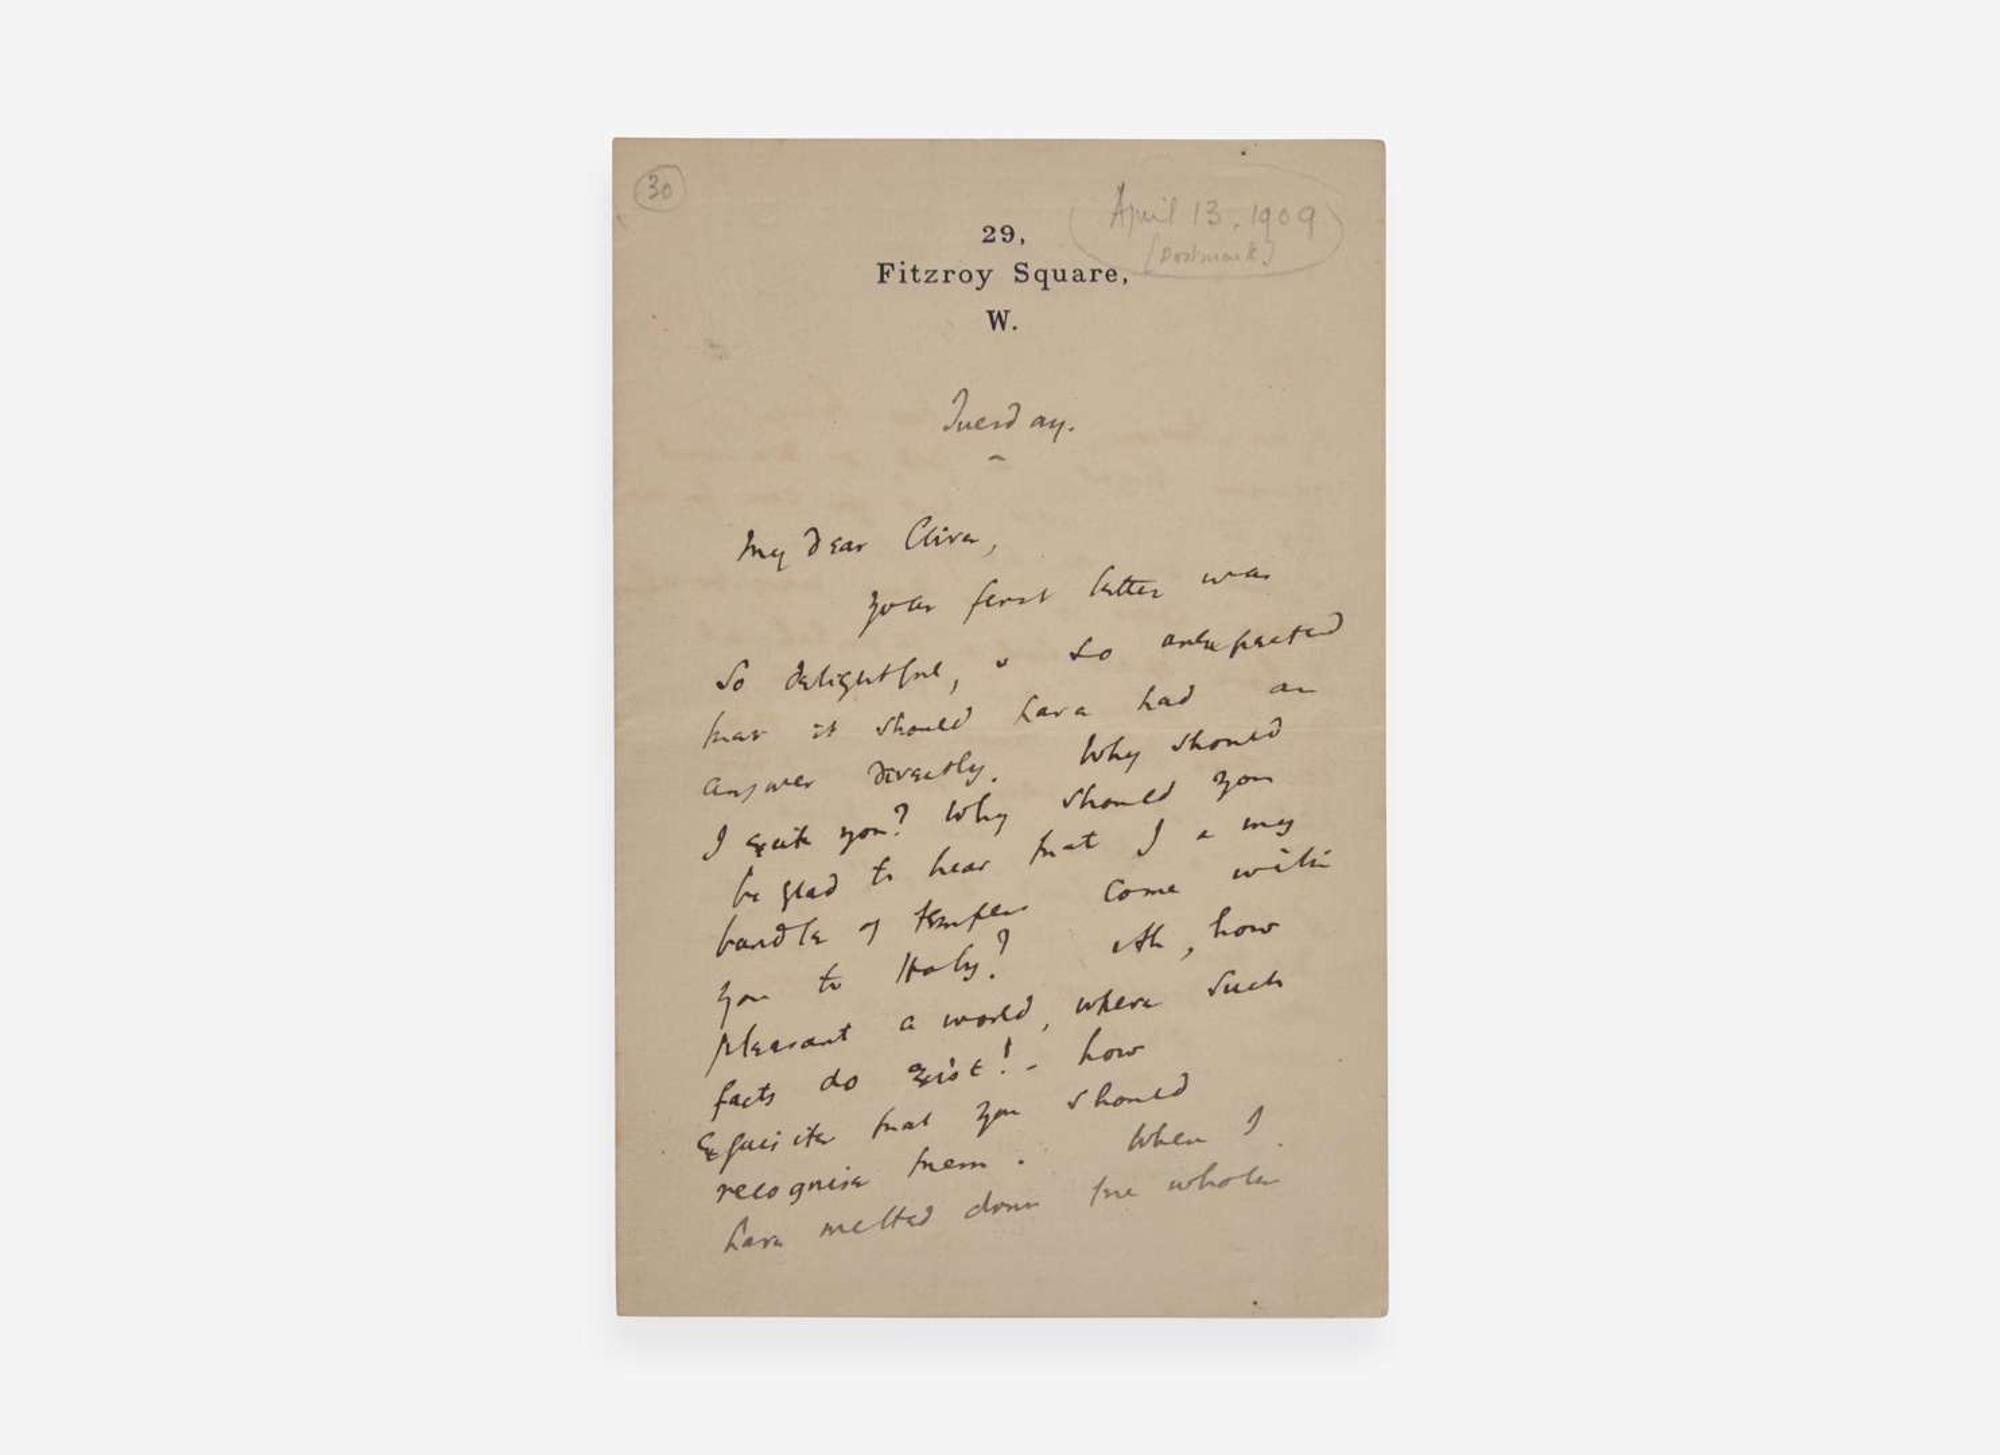 30
April 13. 1909
(Postmark)
29,
Fitzroy Square,
W.
Tuesday.
My dear Clive,
Your first letter was
so delightful, & so unexpected
that it should have had an
answer directly. Why should
I excite you? Why should you
be glad to hear that I & my
bundle of tempers come with
you to Italy? Ah, how
pleasant a world, where such
facts do exist! - how
exquisite that you should
recognise them. When I
have melted down the whole